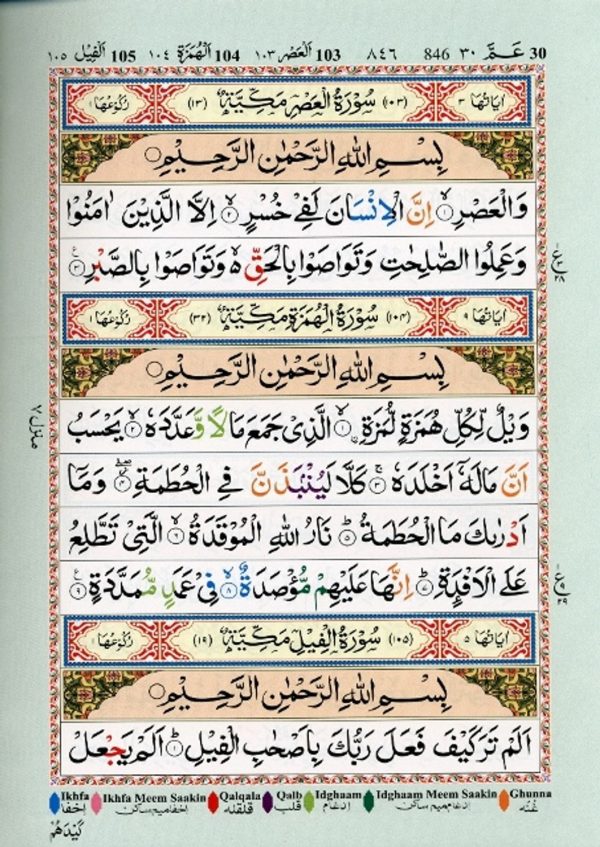 30 عَمَّ ٣٠ 846 ٨٤٦ 103 اَلْعَصْر ١٠٣ 104 اَلْهُمَزَة ١٠٤ 105 اَلْفِيْل ١٠٥
اٰيَاتُهَا ٣ (١٠٣) سُوْرَةُ الْعَصْرِ مَكِّيَّةٌ (١٣) رُكُوْعُهَا ١
بِسْمِ اللهِ الرَّحْمٰنِ الرَّحِيْمِ
وَالْعَصْرِ ۙ﴿١﴾ اِنَّ الْاِنْسَانَ لَفِيْ خُسْرٍ ۙ﴿٢﴾ اِلَّا الَّذِيْنَ اٰمَنُوْا
وَعَمِلُوا الصّٰلِحٰتِ وَتَوَاصَوْا بِالْحَقِّ ۙ۬ وَتَوَاصَوْا بِالصَّبْرِ ﴿٣﴾
ع ٢٨
اٰيَاتُهَا ٩ (١٠٤) سُوْرَةُ الْهُمَزَةِ مَكِّيَّةٌ (٣٢) رُكُوْعُهَا ١
بِسْمِ اللهِ الرَّحْمٰنِ الرَّحِيْمِ
وَيْلٌ لِّكُلِّ هُمَزَةٍ لُّمَزَةِ ۙ﴿١﴾ اۨلَّذِيْ جَمَعَ مَالًا وَّعَدَّدَهٗ ۙ﴿٢﴾ يَحْسَبُ
اَنَّ مَالَهٗۤ اَخْلَدَهٗ ۚ﴿٣﴾ كَلَّا لَيُنْۢبَذَنَّ فِي الْحُطَمَةِ ۖ﴿٤﴾ وَمَاۤ
اَدْرٰىكَ مَا الْحُطَمَةُ ۗ﴿٥﴾ نَارُ اللهِ الْمُوْقَدَةُ ۙ﴿٦﴾ الَّتِيْ تَطَّلِعُ
عَلَى الْاَفْـِٕدَةِ ۗ﴿٧﴾ اِنَّهَا عَلَيْهِمْ مُّؤْصَدَةٌ ۙ﴿٨﴾ فِيْ عَمَدٍ مُّمَدَّدَةٍ ﴿٩﴾
ع ٩ ٢٩
منزل ٧
اٰيَاتُهَا ٥ (١٠٥) سُوْرَةُ الْفِيْلِ مَكِّيَّةٌ (١٩) رُكُوْعُهَا ١
بِسْمِ اللهِ الرَّحْمٰنِ الرَّحِيْمِ
اَلَمْ تَرَ كَيْفَ فَعَلَ رَبُّكَ بِاَصْحٰبِ الْفِيْلِ ۗ﴿١﴾ اَلَمْ يَجْعَلْ
Ikhfa Ikhfa Meem Saakin Qalqala Qalb Idghaam Idghaam Meem Saakin Ghunna
اِخفا اخفامیم ساكن قلقله قلب اِدغام ادغام میم ساكن غُنّه
كَيْدَهُمْ